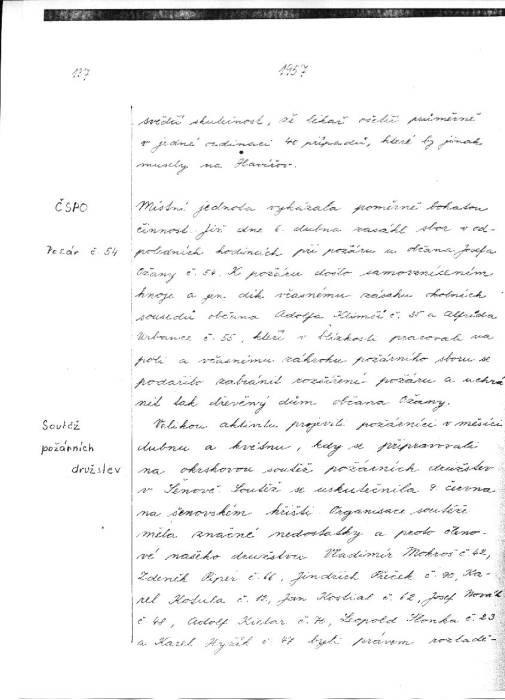 137
1957
svědčí skutečnost, že lékař ošetří průměrně
v jedné ordinaci 40 případů, které by jinak
musely na Havířov.
ČSPO
Místní jednota vykázala poměrně bohatou
činnost. Již dne 6. dubna zasáhl sbor v od-
Požár č 54
poledních hodinách při požáru u občana Josefa
Ožany č. 54. K požáru došlo samovznícením
hnoje a jen dík včasnému zásahu okolních
sousedů občana Adolfa Klimši č. 35 a Alfréda
Urbance č. 55, kteří v blízkosti pracovali na
poli a včasnému zákroku požárního sboru se
podařilo zabránit rozšíření požáru a uchrá
nit tak dřevěný dům občana Ožany.
Soutěž
Velikou aktivitu projevili požárníci v měsíci
požárních
dubnu a květnu, kdy se připravovali
družstev
na okrskovou soutěž požárních družstev
v Šenově. Soutěž se uskutečnila 9 června
na šenovském hřišti. Organisace soutěže
měla značné nedostatky a proto členo-
vé našeho družstva Vladimír Mokroš č 42,
Zdeněk Piper č. 66, Jindřich č. 90, Ka-
rel Košula č. 12, Jan Kostial č. 62, Josef Novák
č 48, Adolf Kielar č. 70, Leopold Honka č. 23
a Karel Hyžík č. 47 byli právem rozladě-